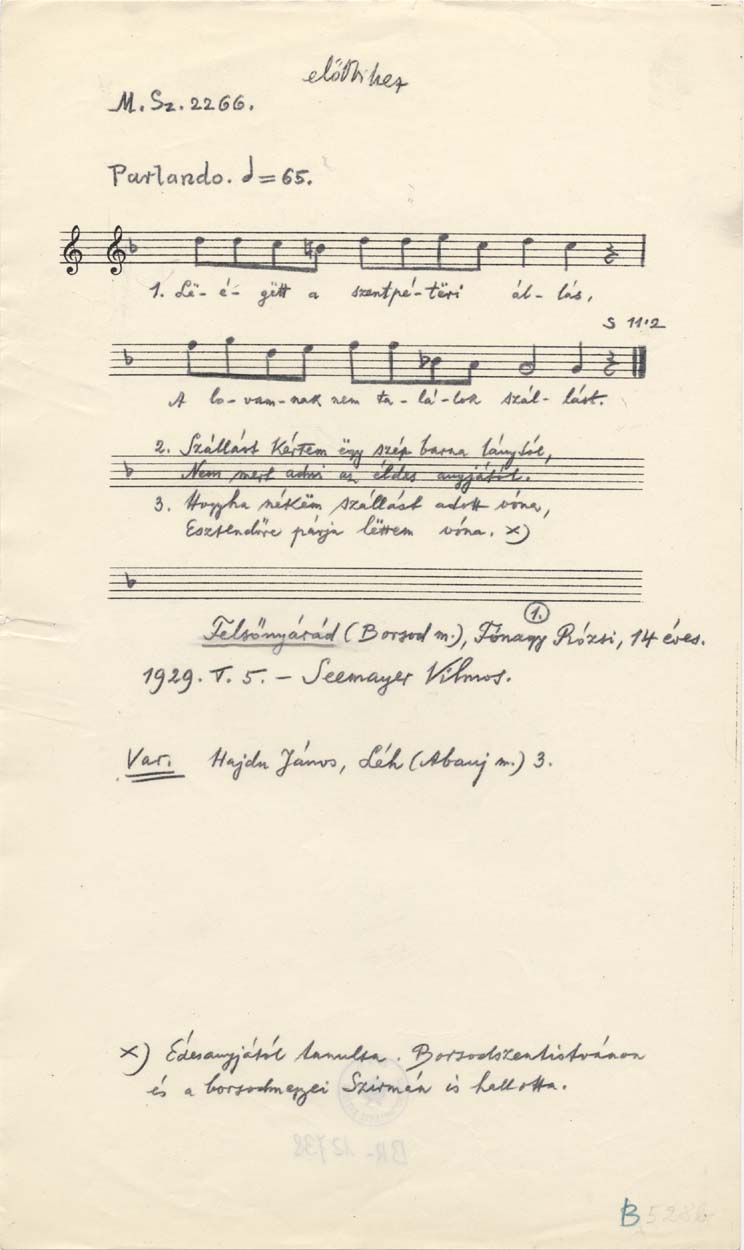 M. Sz. 2266.
Parlando. = 65.
1. Lë- é- gëtt a szentpé- tëri ál- lás,
S 11·2
A lo- vam- nak nem ta- lá- lok szál- lást.
2. Szállást kértem ëgy szép barna lánytól,
Nem mert adni az éldes anyjától.
3. Hogyha nékëm szállást adott vóna,
Esztendőre párja lëttem vóna. x)
1.
Felsőnyárád (Borsod m.), Fónagy Rózsi, 14 éves.
1929. V. 5. – Seemayer Vilmos.
Var. Hajdu János, Léh (Abauj m.) 3.
x) Édesanyjától tanulta. Borsodszentistvánon
és a borsodmegyei Szirmán is hallotta.
BR- 12738
B 5286